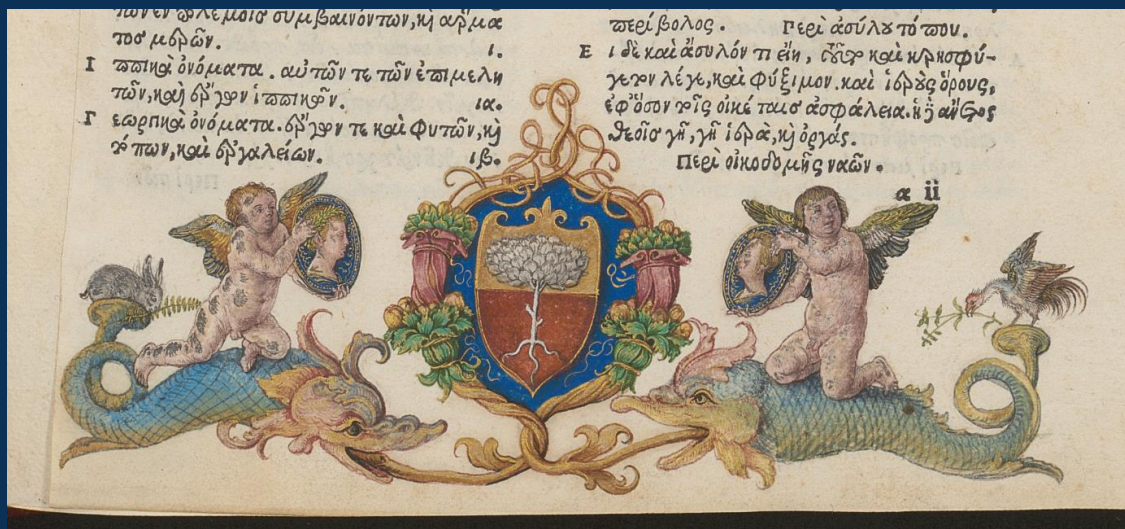 των ἐν πολέμοις συμβαινόντων, καὶ ἅρμα
τος μερῶν. ι.
Ιππικὰ ὀνόματα. αὐτῶν τε τῶν ἐπιμελη
τῶν, καὶ ἔργων ἱππικῶν. ια.
Γεωργικὰ ὀνόματα. ἔργων τε καὶ φυτῶν, καὶ
τόπων, καὶ ἐργαλείων. ιβ.
περίβολος. Περὶ ἀσύλου τόπου.
Ει δὲ καὶ ἄσυλόν τι εἴη, τοῦτο καὶ κρησφύ
γετον λέγε, καὶ φύξιμον. καὶ ἱεροὺς ὅρους,
ἐφ' ὅσον τοῖς οἰκέταις ἀσφάλεια. ἡ δὲ ἄνετος
θεοῖς γῆ, γῆ ἱερὰ, καὶ ὀργάς.
Περὶ οἰκοδομῆς ναῶν.
a ii